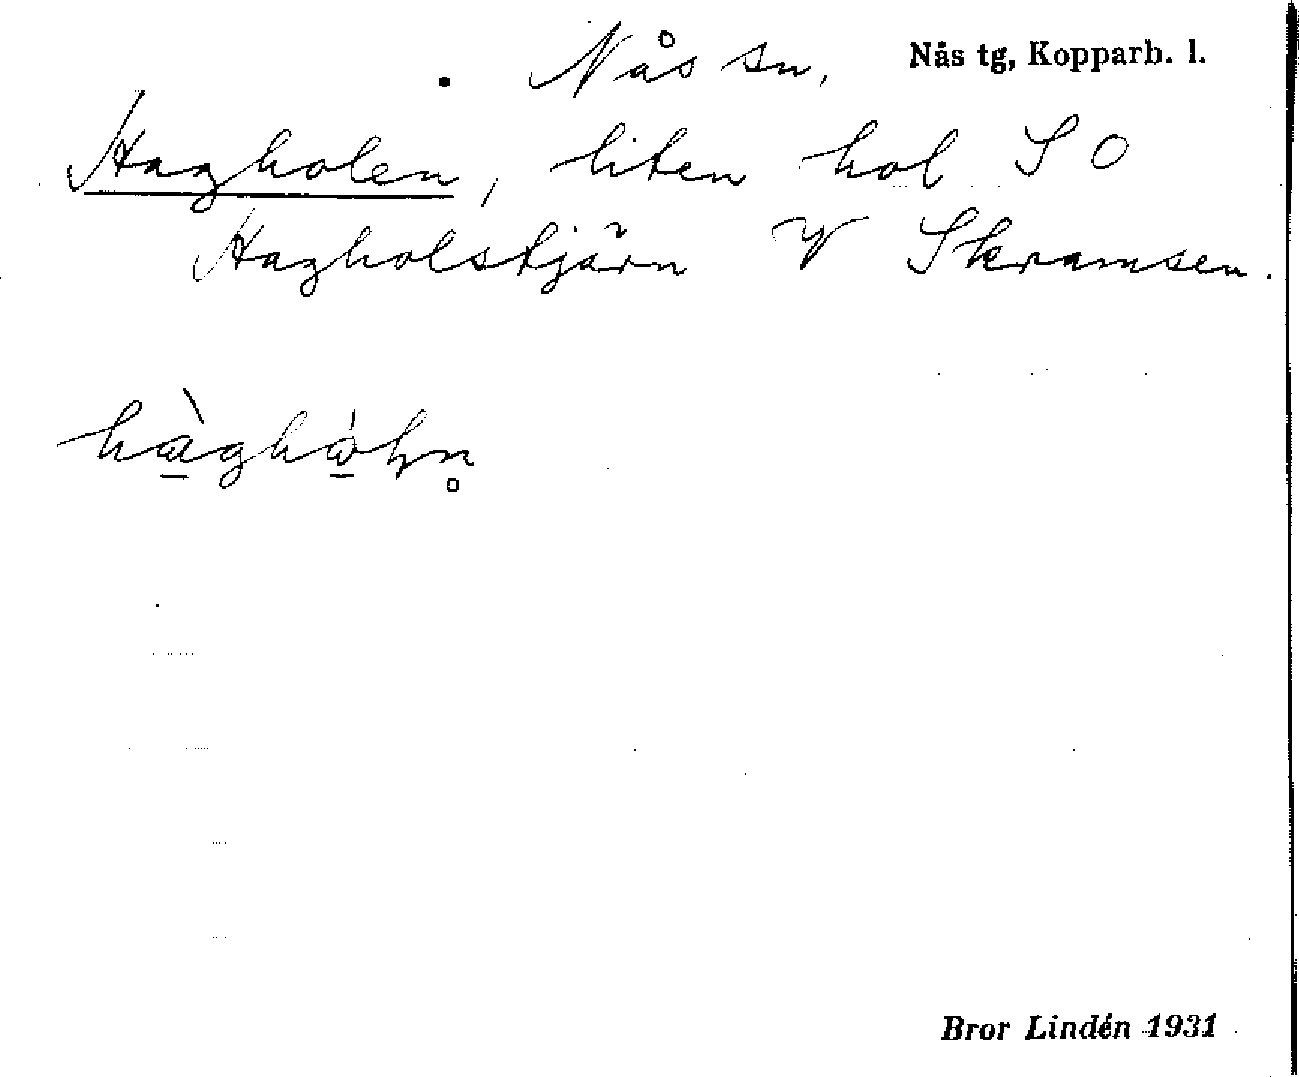 Nås sn, Nås tg, Kopparb. l.
Hagholen, liten hol S O
Hagholstjärn V Skramsen.
hàghòln̥
Bror Lindén 1931